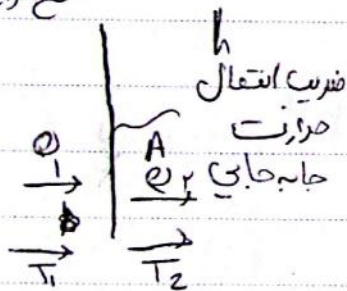 h
ضریب انتقال
حرارت
جابه جایی
A
Q₁
Q₂
T₁
T₂